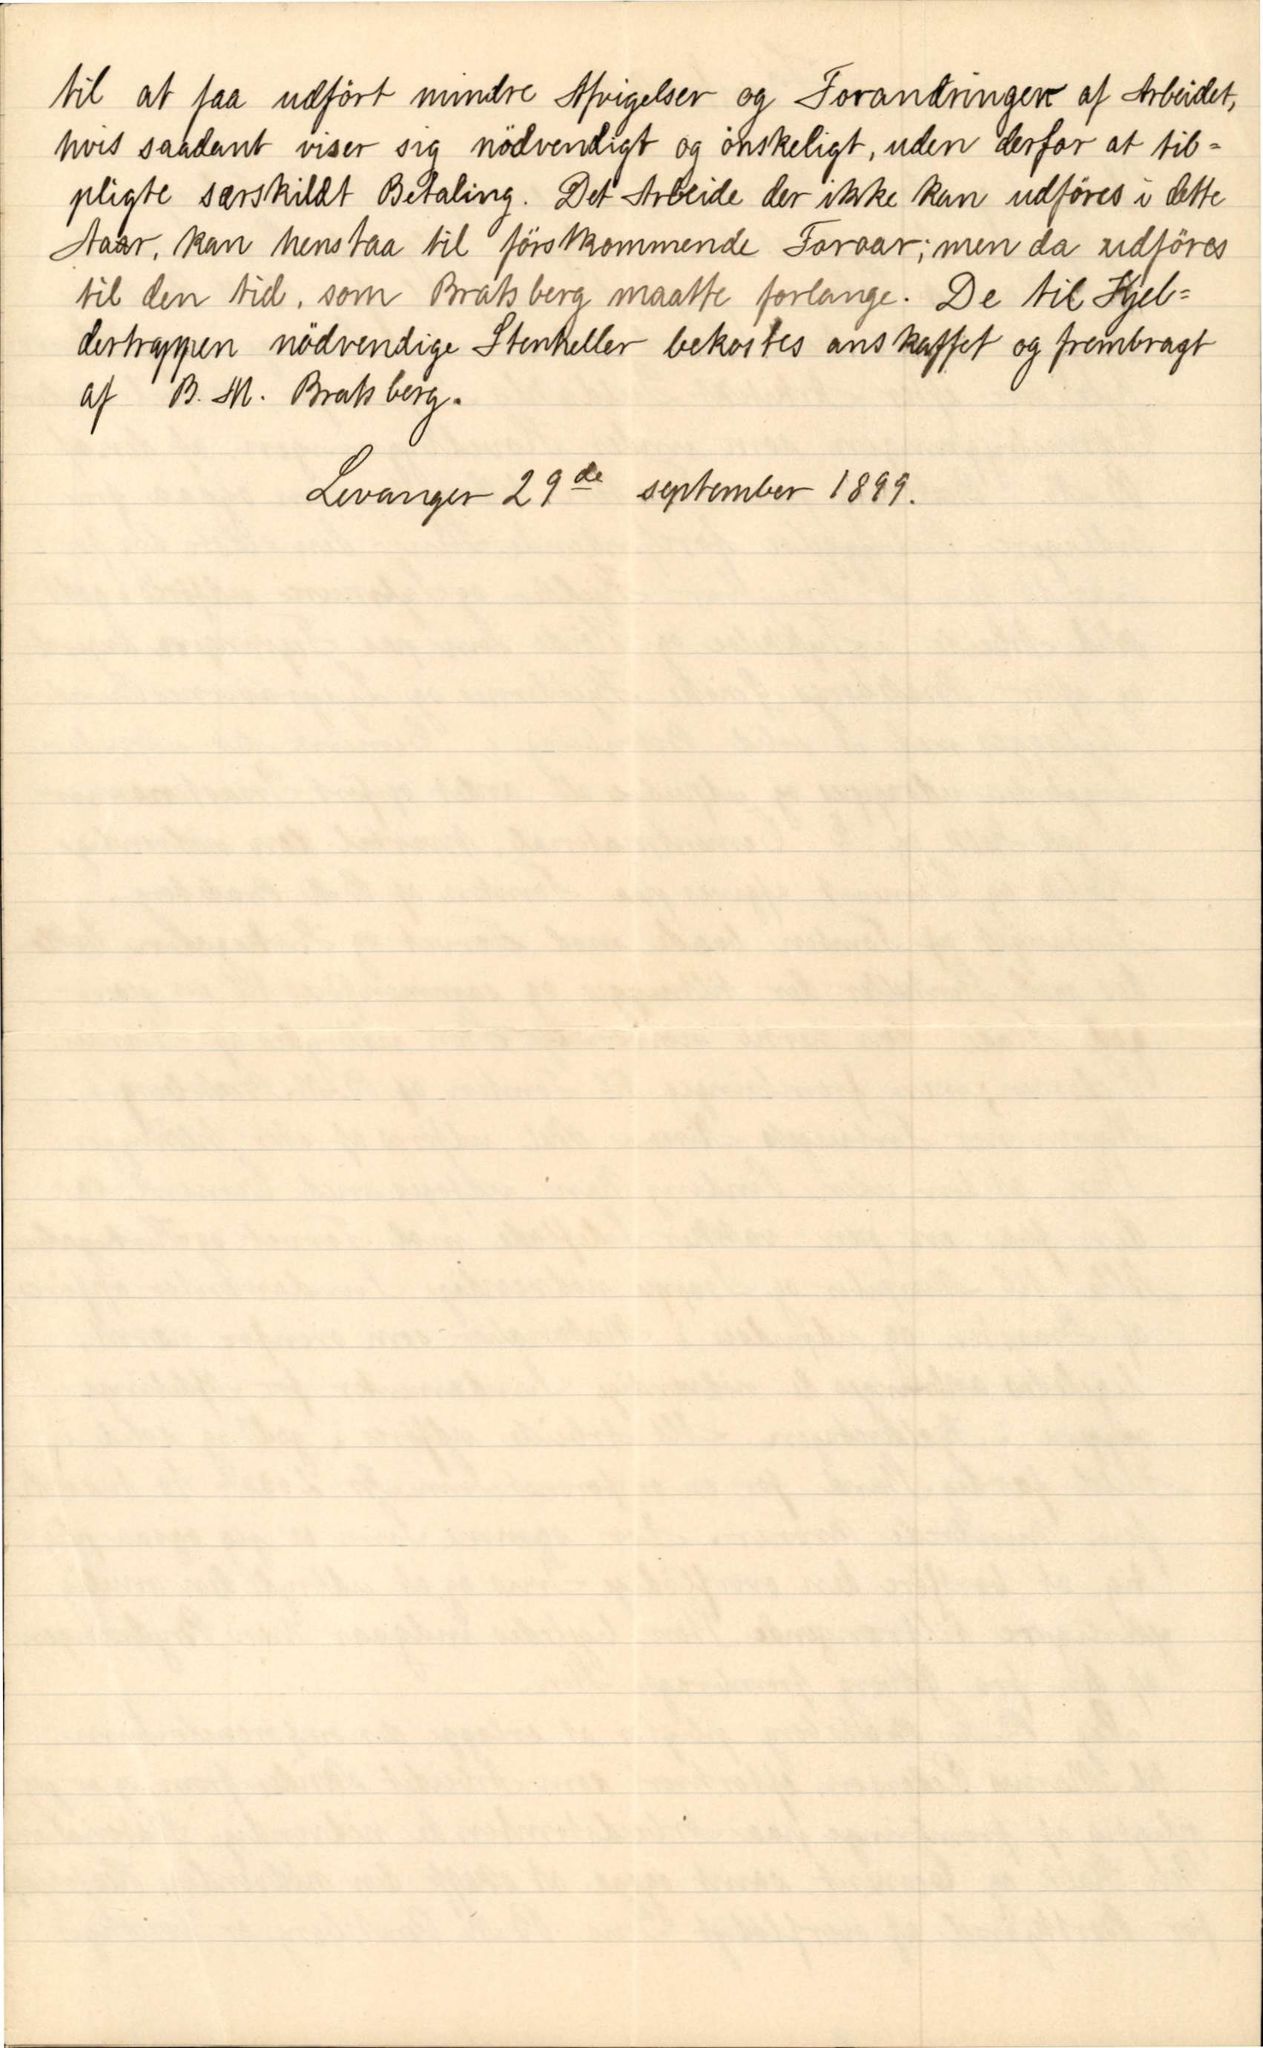 til at faa udført mindre Afvigelser og Forandringer af Arbeidet,
hvis saadant viser sig nödvendigt og önskeligt, uden derfor at til=
pligte særskildt Betaling. Det Arbeide der ikke kan udföres i dette
Aaar, kan henstaa til förstkommende Foraar; men da udföres
til den tid, som Bratsberg maatte forlange. De til Kjel=
dertrappen nödvendige Stenheller bekostes anskaffet og frembragt
af B. M. Bratsberg.
Levanger 29de september 1899.